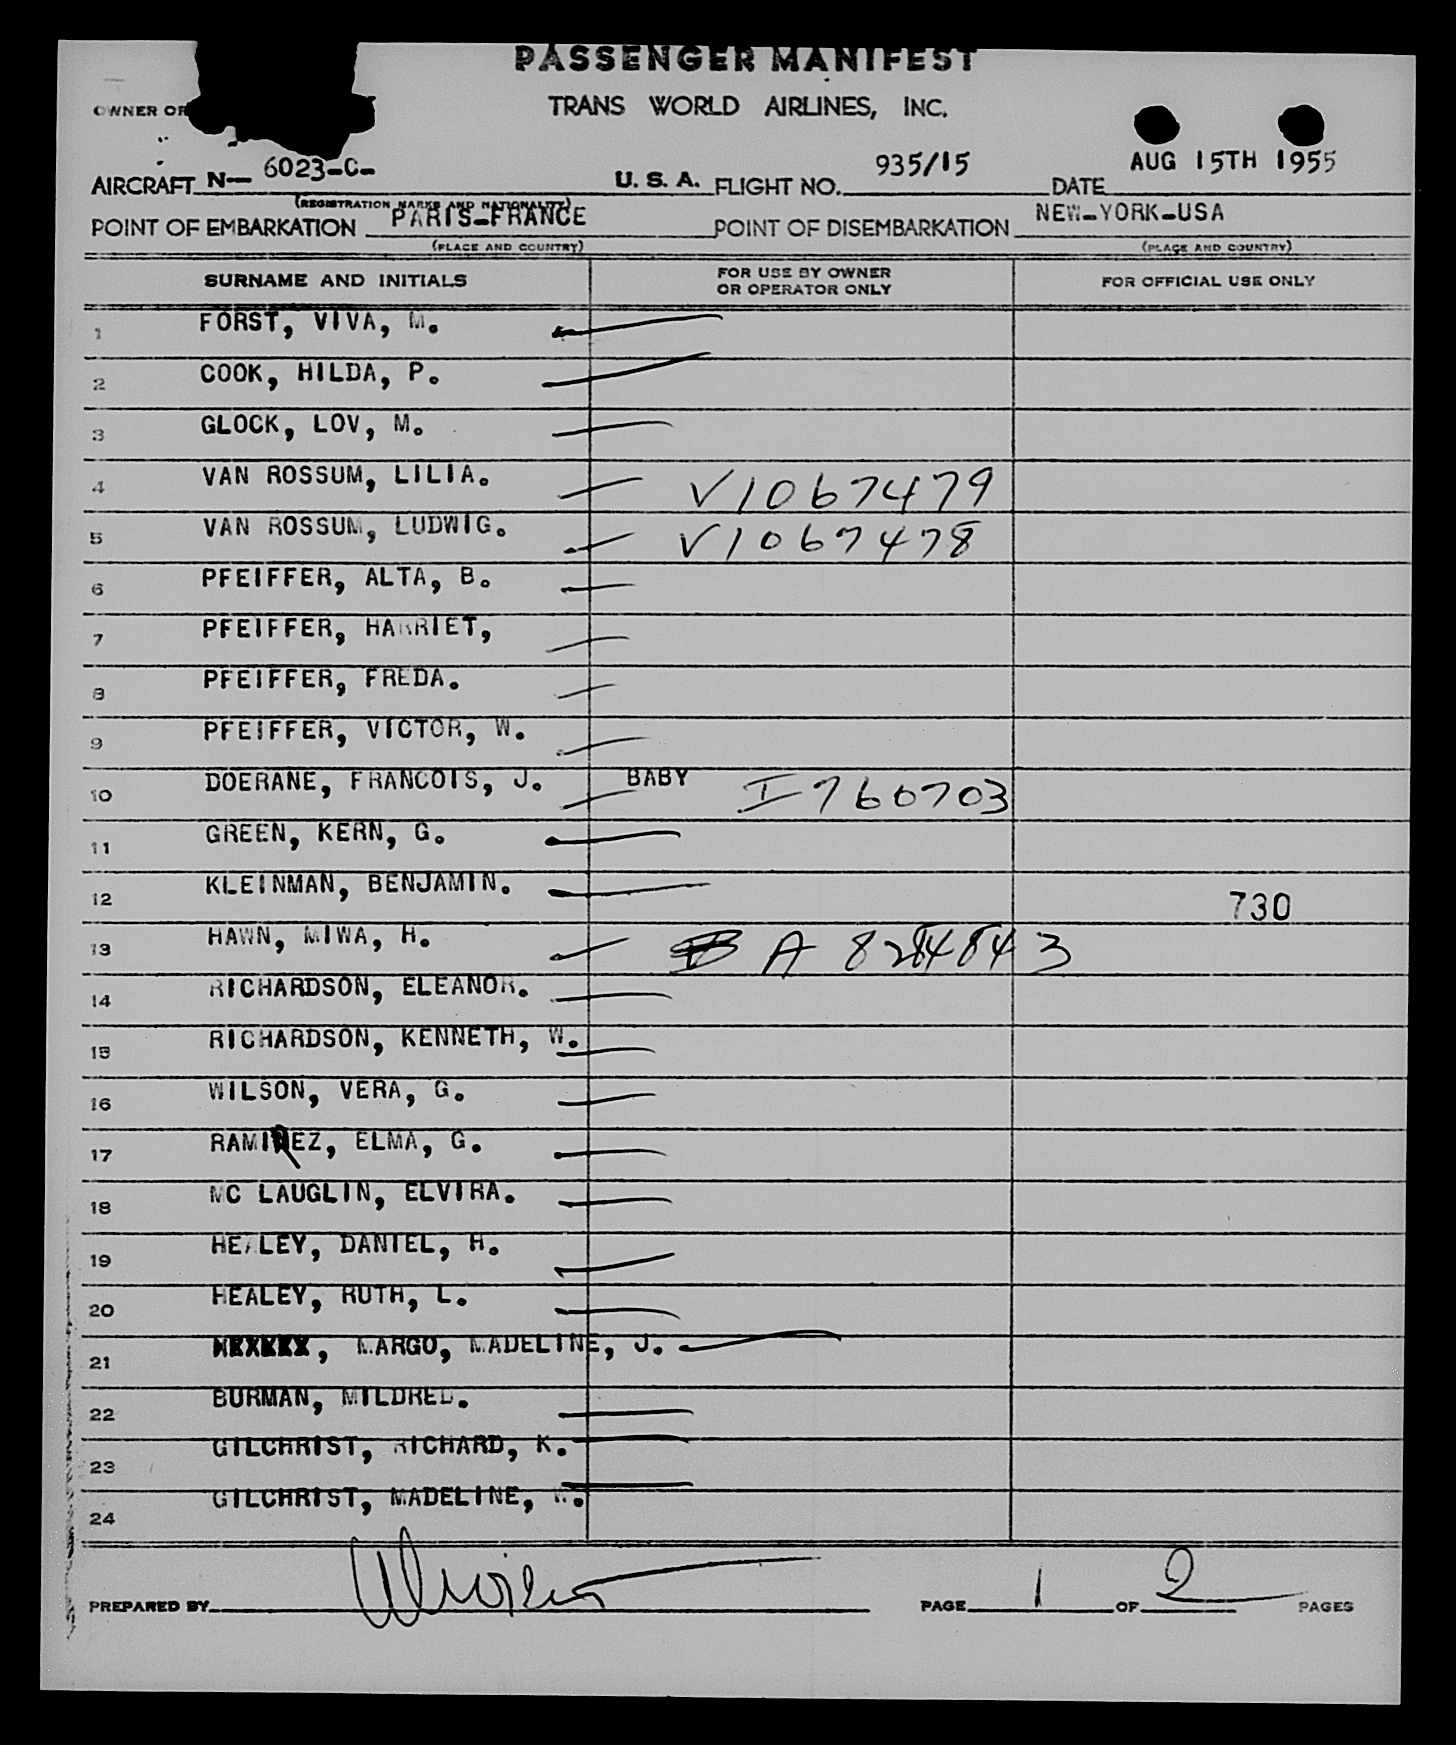 PASSENGER MANIFEST
OWNER OR
TRANS WORLD AIRLINES, INC.
AIRCRAFT N— 6023-C- U. S. A. FLIGHT NO. 935/15 DATE AUG 15TH 1955
(REGISTRATION MARKS AND NATIONALITY)
POINT OF EMBARKATION PARIS-FRANCE POINT OF DISEMBARKATION NEW-YORK-USA
(PLACE AND COUNTRY) (PLACE AND COUNTRY)
SURNAME AND INITIALS FOR USE BY OWNER OR OPERATOR ONLY FOR OFFICIAL USE ONLY
1 FORST, VIVA, M.
2 COOK, HILDA, P.
3 GLOCK, LOV, M.
4 VAN ROSSUM, LILIA. V1067479
5 VAN ROSSUM, LUDWIG. V1067478
6 PFEIFFER, ALTA, B.
7 PFEIFFER, HARRIET,
8 PFEIFFER, FREDA.
9 PFEIFFER, VICTOR, W.
10 DOERANE, FRANCOIS, J. BABY I760703
11 GREEN, KERN, G.
12 KLEINMAN, BENJAMIN. 730
13 HAWN, MIWA, H. A
14 RICHARDSON, ELEANOR.
15 RICHARDSON, KENNETH, W.
16 WILSON, VERA, G.
17 RAMIREZ, ELMA, G.
18 MC LAUGLIN, ELVIRA.
19 HEALEY, DANIEL, H.
20 HEALEY, RUTH, L.
21 MARGO, MADELINE, J.
22 BURMAN, MILDRED.
23 GILCHRIST, RICHARD, K.
24 GILCHRIST, MADELINE, W.
PREPARED BY PAGE 1 OF 2 PAGES